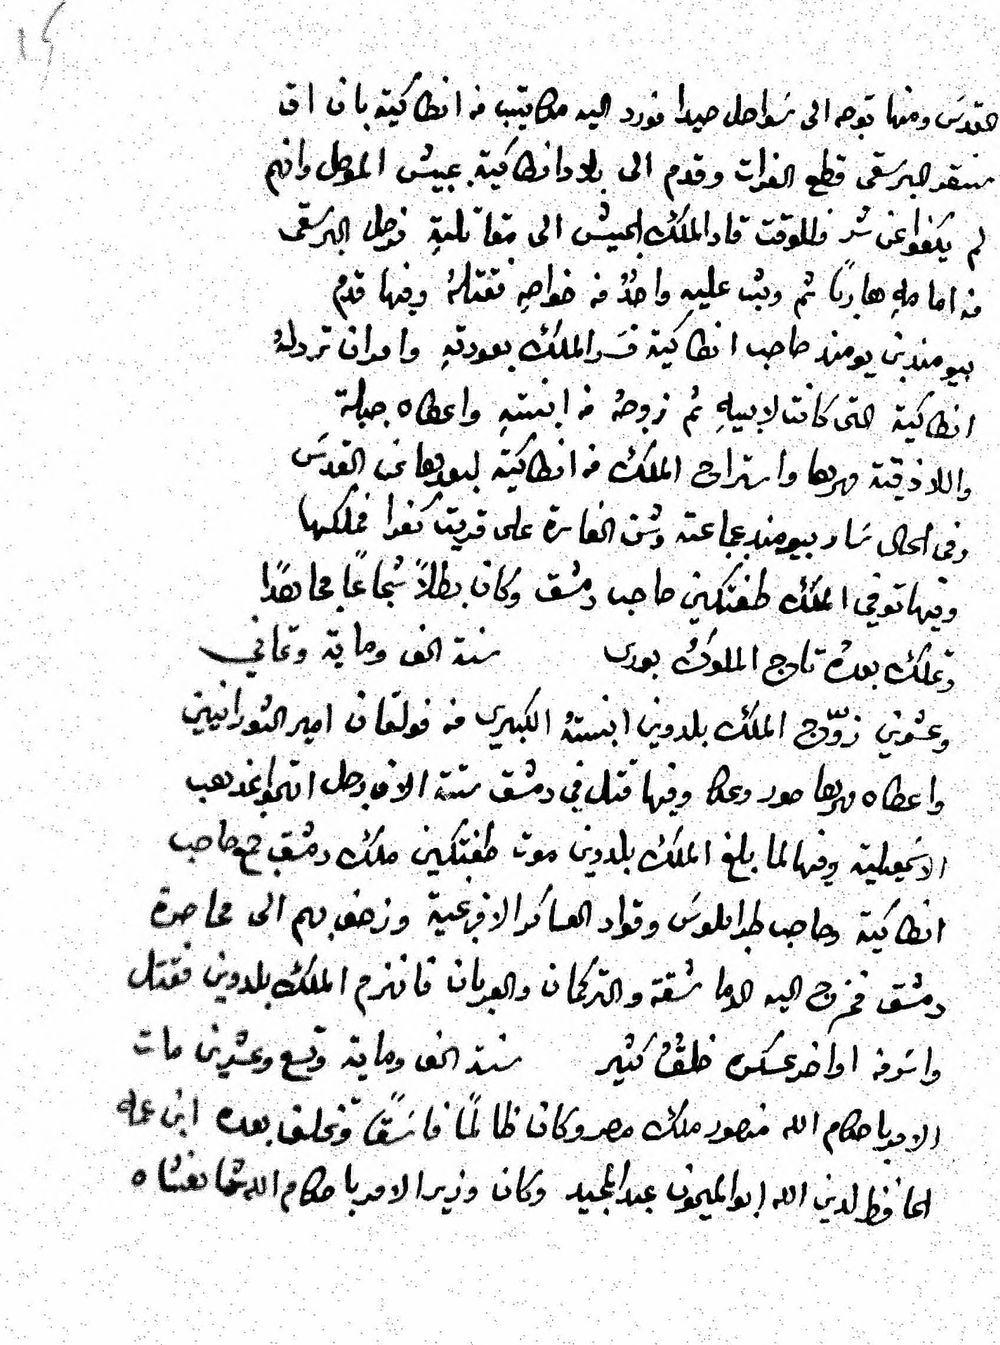 القدس ومنها توجه الى سواحل صيدا فورد اليه مكاتيب من انطاكية بان اق
سنقر البرسقى قطع الفرات وقدم الى بلاد انطاكية بجيش الموصل وانهم
لم يكفوا عن شر فللوقت قاد الملك الجيش الى مقاتلته فرحل البرسقى
من امامه هاربًا ثم وثب عليه واحدٌ من خواصه فقتله وفيها قدم
بيومند بن يومند صاحب انطاكية فسر الملك بعودته وامر ان ترد له
انطاكية التى كانت لابيه ثم زوجه من ابنته واعطاه جبلة
واللاذقية مهرها واستراح الملك من انطاكية لبعدها عن القدس
وفى الحال سار بيومند بجماعته وشن الغارة على قرية كفرا فملكها
وفيها توفي الملك طغتكين صاحب دمشق وكان بطلاً شجاعًا مجاهدًا
وتملك بعده تاج الملوك بورى سنة الف وماية وثماني
وعشرين زوّج الملك بلدوين ابنته الكبيرى من فولقان امير التورانيين
واعطاه مهرها صور وعكا وفيها قتل في دمشق ستة الاف رجل اتهموا بمذهب
الاسمعيلية وفيها لما بلغ الملك بلدوين موت طغتكين ملك دمشق جمع صاحب
انطاكية وصاحب طرابلوس وقواد العساكر الافرنجية وزحف بهم الى محاصرة
دمشق فخرج اليه الدماشقة والتركمان والعربان فانهزم الملك بلدوين فقتل
واسر من اواخر عسكره خلقٌ كثير سنة الف وماية وتسع وعشرين مات
الامر باحكام الله منصور ملك مصر وكان ظالمًا فاسقًا وتخلف بعده ابن عمه
الحافظ لدين الله ابو الميمون عبد المجيد وكان وزير الامر باحكام الله شاهنشاه